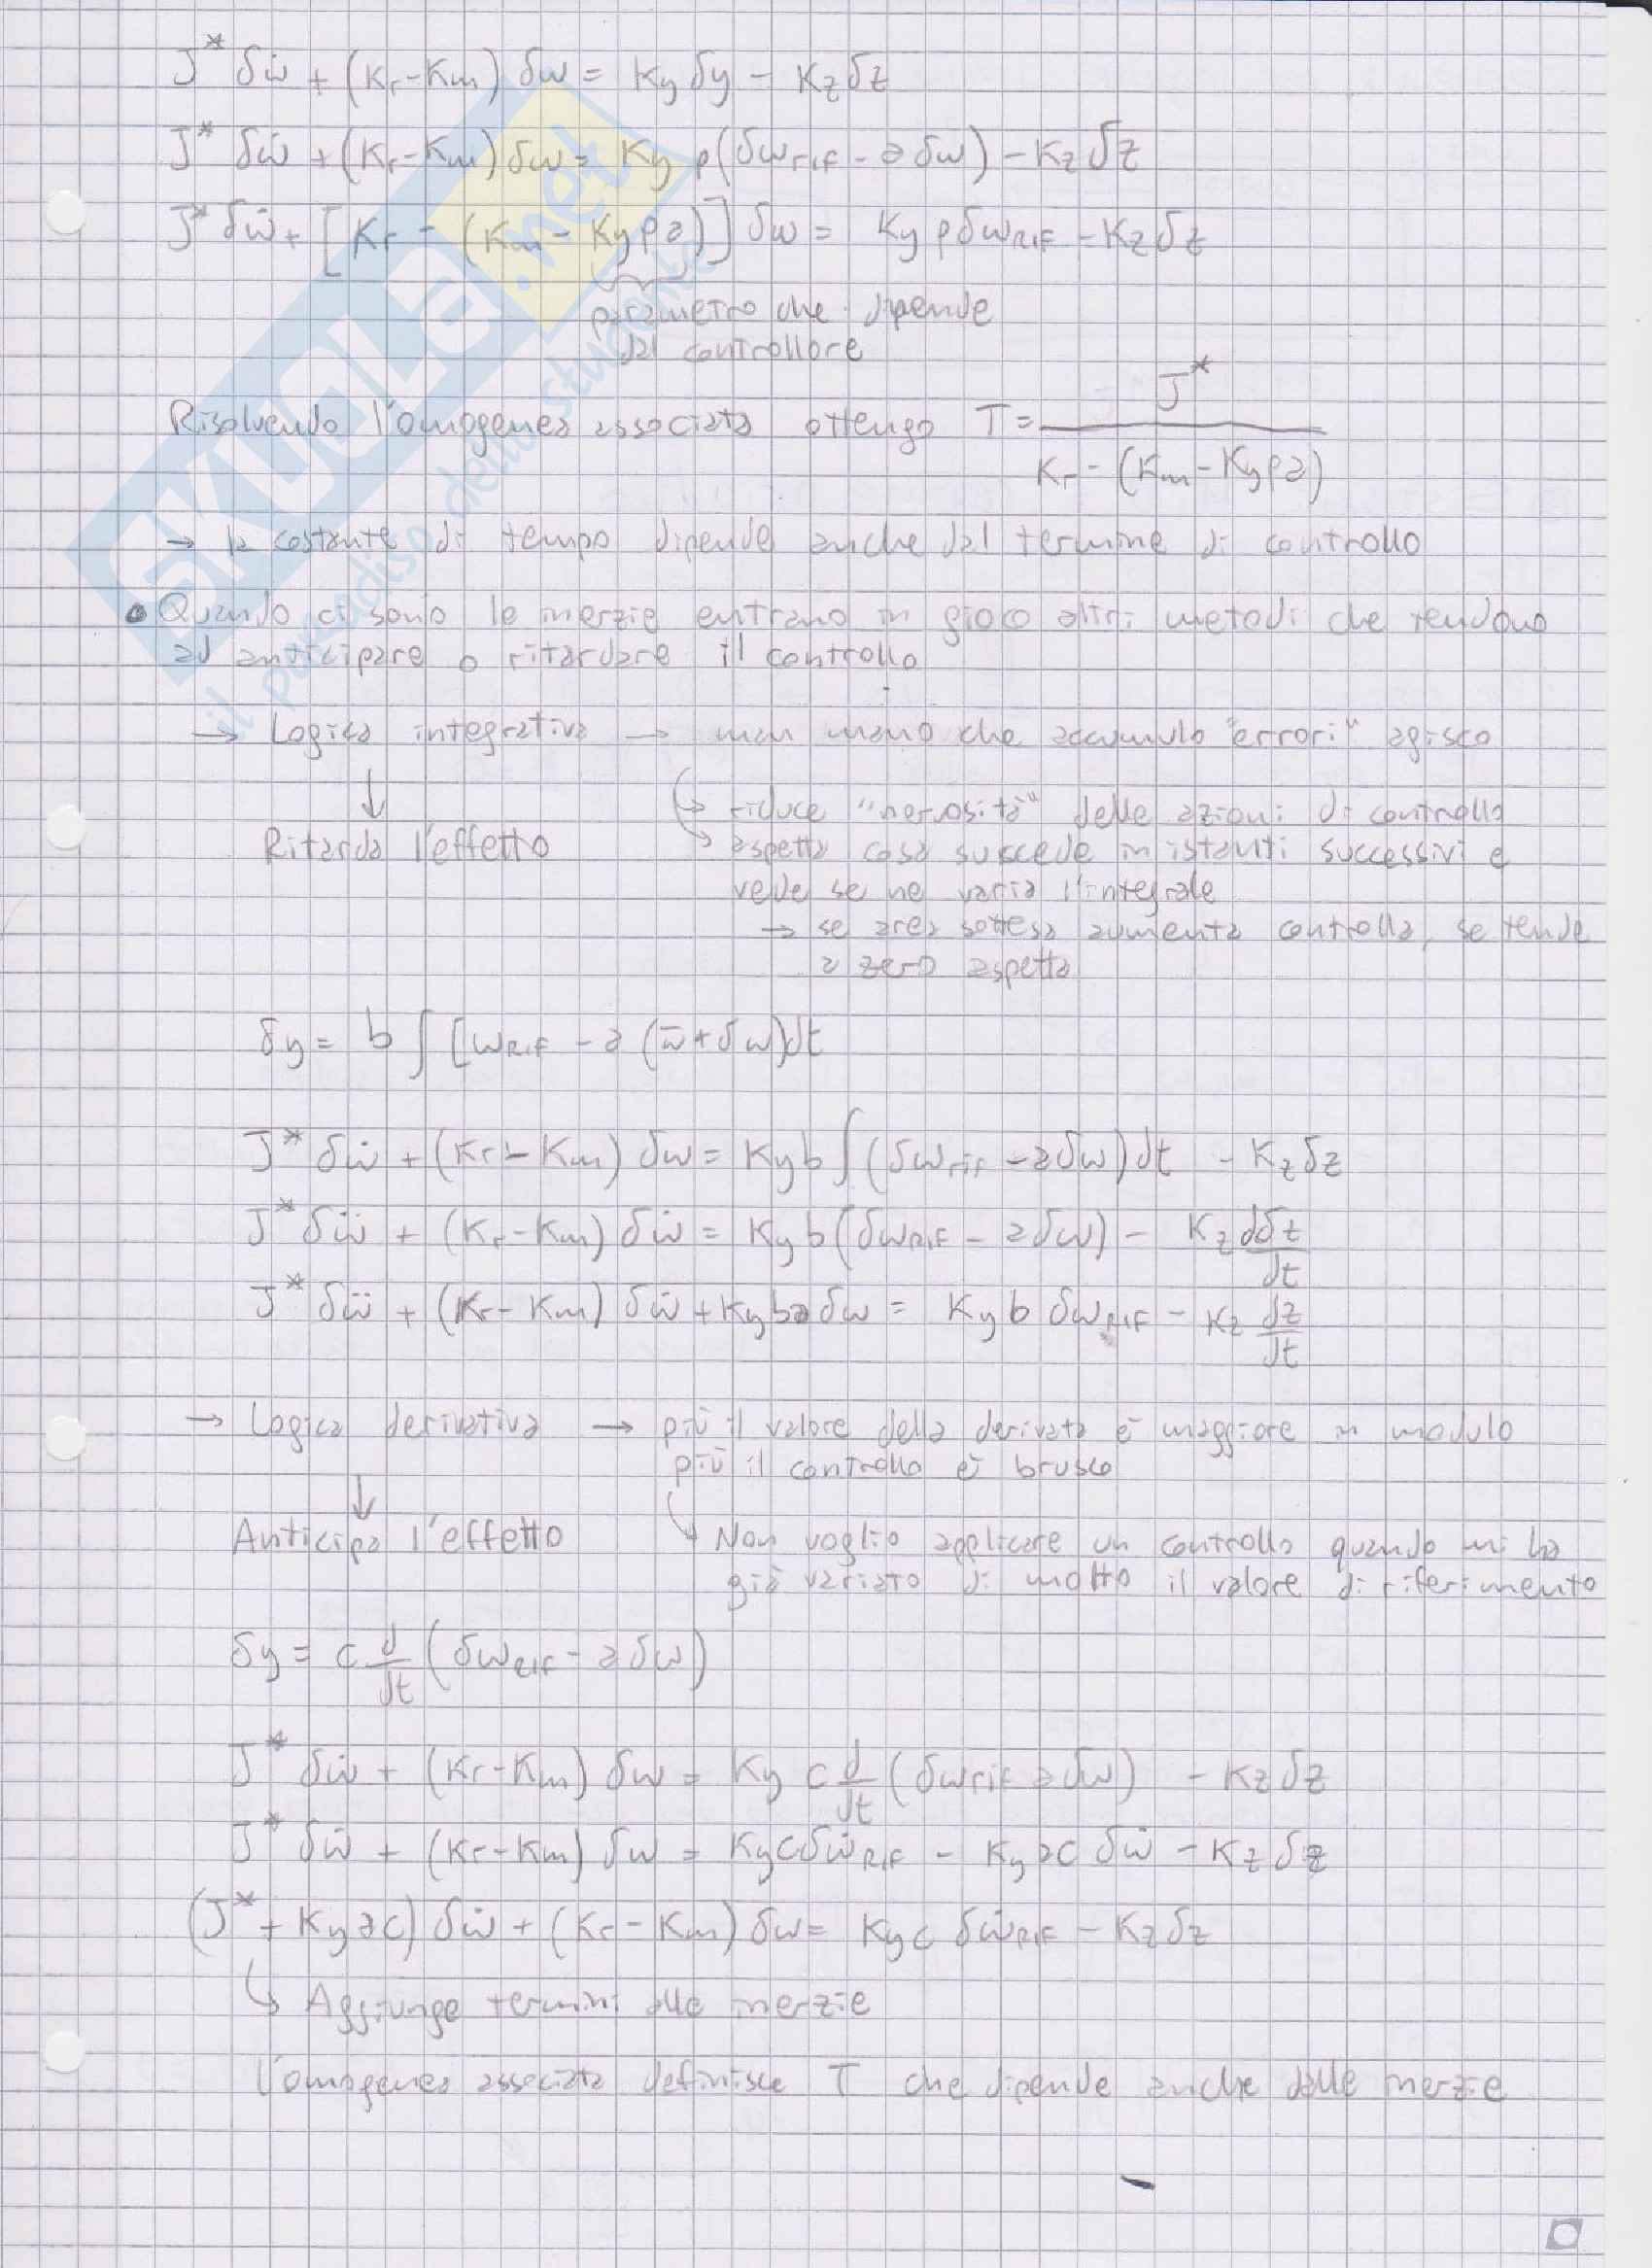 J* δω̇ + (Kr - Km) δω = Ky δy - Kz δz
J* δω̇ + (Kr - Km) δω = Ky p(δω rif - a δω) - Kz δz
J* δω̇ + [Kr - (Km - Ky p a)] δω = Ky p δω RIF - Kz δz
parametro che dipende
dal controllore
Risolvendo l'omogenea associata ottengo T = J* / (Kr - (Km - Ky p a))
→ la costante di tempo dipende anche dal termine di controllo
• Quando ci sono le inerzie entrano in gioco altri metodi che tendono
ad anticipare o ritardare il controllo
→ Logica integrativa → man mano che accumulo "errori" agisco
↓
↳ riduce "nervosità" delle azioni di controllo
Ritarda l'effetto
↳ aspetta cosa succede in istanti successivi e
vede se ne varia l'integrale
→ se area sottesa aumenta controlla, se tende
a zero aspetta
δy = b ∫ [ω RIF - a (ω̄ + δω)dt
J* δω̇ + (Kr - Km) δω = Ky b ∫ (δω rif - a δω) dt - Kz δz
J* δω̈ + (Kr - Km) δω̇ = Ky b (δω RIF - a δω) - Kz dδz/dt
J* δω̈ + (Kr - Km) δω̇ + Ky b a δω = Ky b δω RIF - Kz dz/dt
→ Logica derivativa → più il valore della derivata è maggiore in modulo
più il controllo è brusco
↓
Anticipa l'effetto
↳ Non voglio applicare un controllo quando mi ha
già variato di molto il valore di riferimento
δy = c d/dt (δω RIF - a δω)
J* δω̇ + (Kr - Km) δω = Ky c d/dt (δω rif - a δω) - Kz δz
J* δω̇ + (Kr - Km) δω = Ky c δω̇ RIF - Ky a c δω̇ - Kz δz
(J* + Ky a c) δω̇ + (Kr - Km) δω = Ky c δω̇ RIF - Kz δz
↳ Aggiunge termini alle inerzie
L'omogenea associata definisce T che dipende anche dalle inerzie
SKUOLA.net
il paradiso dello studente